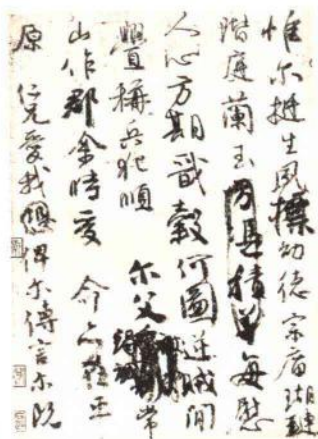 惟尔挺生夙標幼德宗廟瑚璉
階庭蘭玉每慰
人心方期戩穀何圖逆賊閒
釁稱兵犯順尔父竭誠常
山作郡余時受命亦在平
原仁兄愛我俾尔傳言尔既